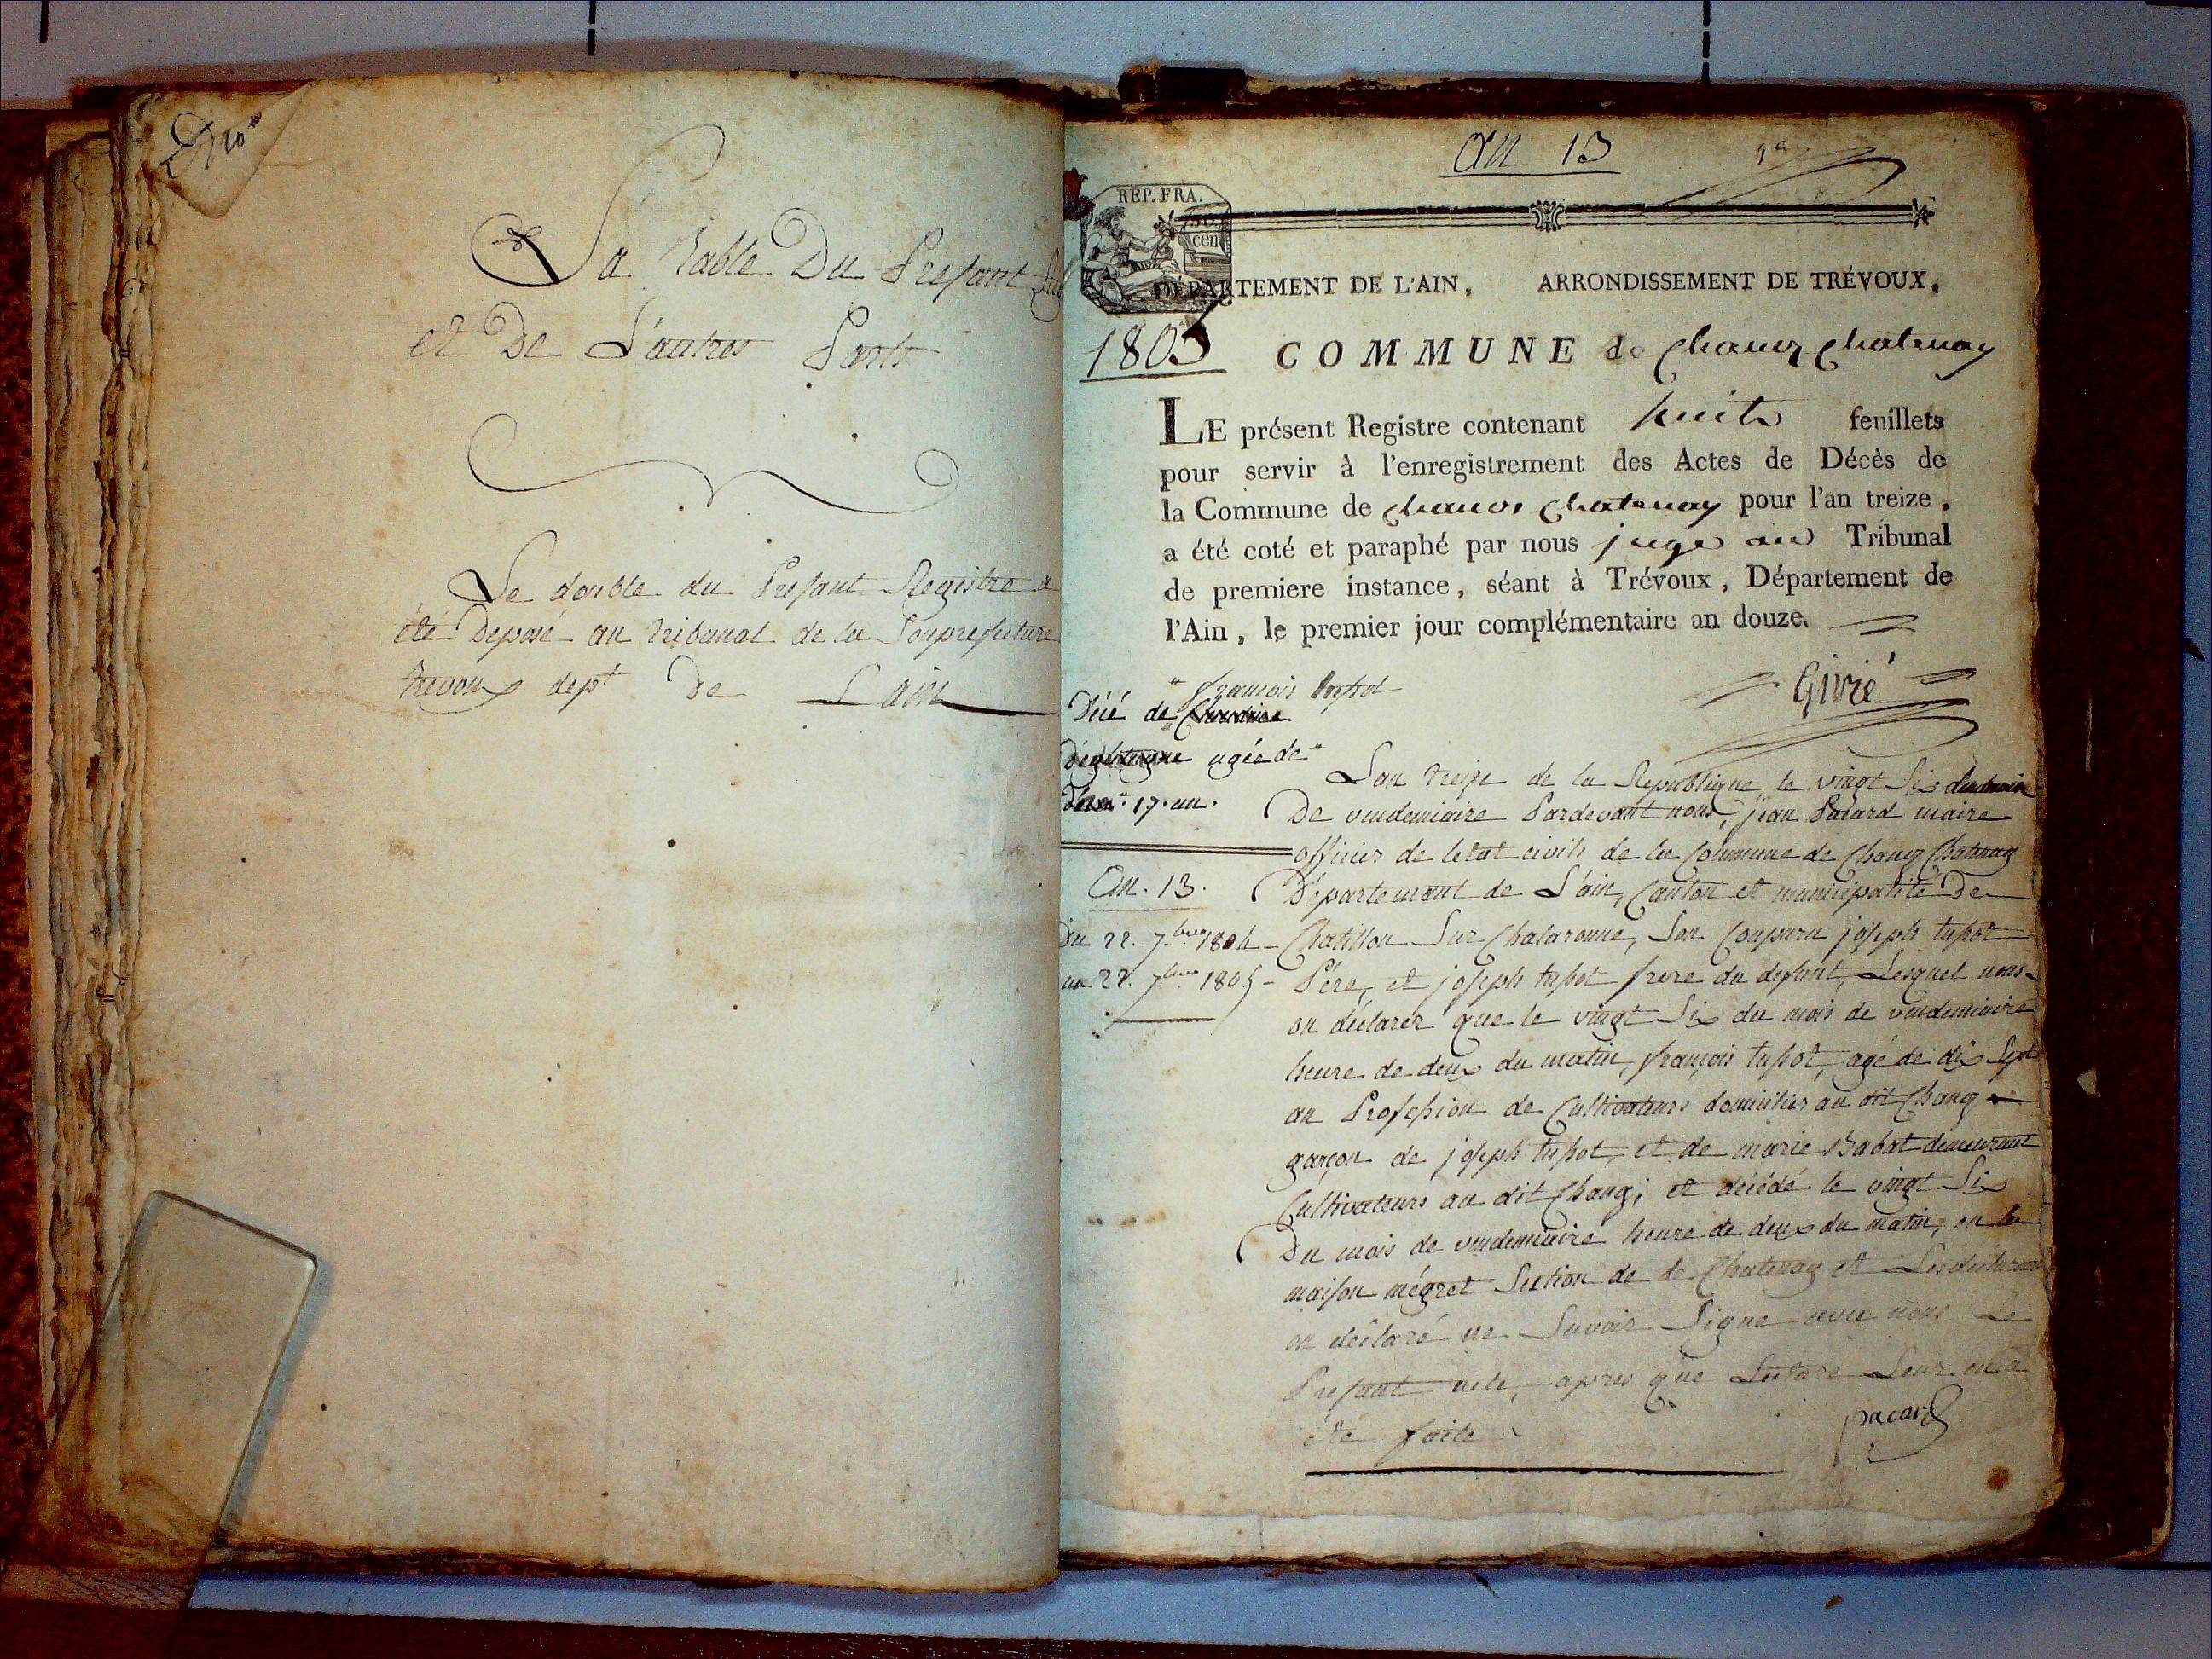 La Table Du Presant
et De L'autres Parts
Le double du Presant Registre a
été Deposé au tribunal de la Souprefecture
trevoux dept De Lain
an 13
REP. FRA.
50
cen
DÉPARTEMENT DE L'AIN, ARRONDISSEMENT DE TRÉVOUX,
1805 COMMUNE de Chanoz Chatenay
LE présent Registre contenant huit feuillets
pour servir à l'enregistrement des Actes de Décès de
la Commune de Chanoz Chatenay pour l'an treize,
a été coté et paraphé par nous juge au Tribunal
de premiere instance, séant à Trévoux, Département de
l'Ain, le premier jour complémentaire an douze.
Givré
françois
Décé de
agée de
17. an.
An. 13.
Du 22. 7bre 1804
au 22. 7bre 1805
Lan treize de la Republique le vingt Six
De vendemiaire Pardevant nous, jean Pacard maire
officier de letat civils de la Commune de Chanoz Chatenay
Département de L'ain, Canton et municipalité De
Chatillon Sur Chalaronne, Son Conparu joseph tupot
Pére, et joseph tupot frere du defunt, Lesquel nous
on déclarer que le vingt Six du mois de vendemiaire
heure de deux du matin, françois tupot, agé de dix Sept
an Profession de Cultivateurs domicilier au dit Chanoz
garçon de joseph tupot, et de marie Babat demeurant
Cultivateurs au dit Chanoz; et décédé le vingt Six
Du mois de vendemiaire heure de deux du matin, en la
maison mégret Section de de Chatenay et Les declarans
on déclaré ne Savoir Signe avec nous Le
Presant acte, apres que Lecture Leur en a
été faite
pacard